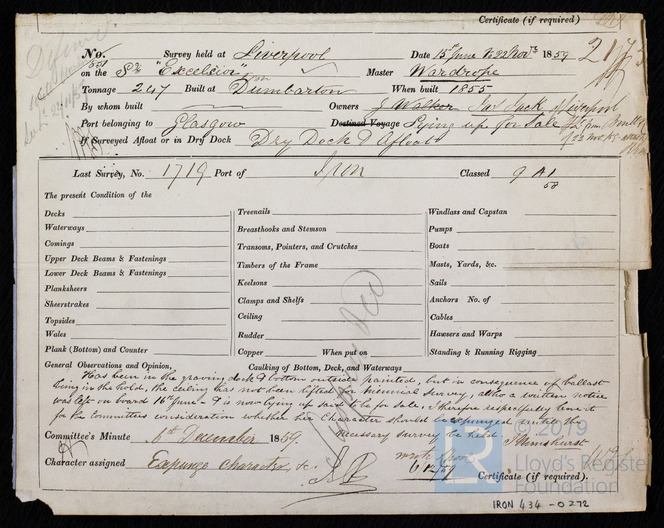 Certificate (if required)
No. Survey held at Liverpool Date 15th June to 22 Novr 1859
on the Sr "Excelsior" Master Wardrope
Tonnage 247 Built at Dumbarton When built 1855
By whom built Owners J Walker
Port belonging to Glasgow Destined Voyage Lying up for Sale
If Surveyed Afloat or in Dry Dock Dry Dock & Afloat
Last Survey, No. 1719 Port of Iron Classed 9 A1
58
The present Condition of the
Decks
Waterways
Comings
Upper Deck Beams & Fastenings
Lower Deck Beams & Fastenings
Planksheers
Sheerstrakes
Topsides
Wales
Plank (Bottom) and Counter
Treenails
Breasthooks and Stemson
Transoms, Pointers, and Crutches
Timbers of the Frame
Keelsons
Clamps and Shelfs
Ceiling
Rudder
Copper When put on
Windlass and Capstan
Pumps
Boats
Masts, Yards, &c.
Sails
Anchors No. of
Cables
Hawsers and Warps
Standing & Running Rigging
General Observations and Opinion, Caulking of Bottom, Deck, and Waterways
Has been in the graving dock & bottom outside painted, but in consequence of ballast
being in the hold, the ceiling has not been lifted for biennial survey, altho a written notice
was left on board 16th June - & is now lying up said to be for sale, I therefore respectfully leave it
for the Committee's consideration whether her Character should be expunged until the
necessary survey be held.
Committee's Minute 6th December 1859
Character assigned Expunge character, &c.
Certificate (if required).
© 2019
LR
Lloyd's Register
Foundation
IRON 434 - 0272